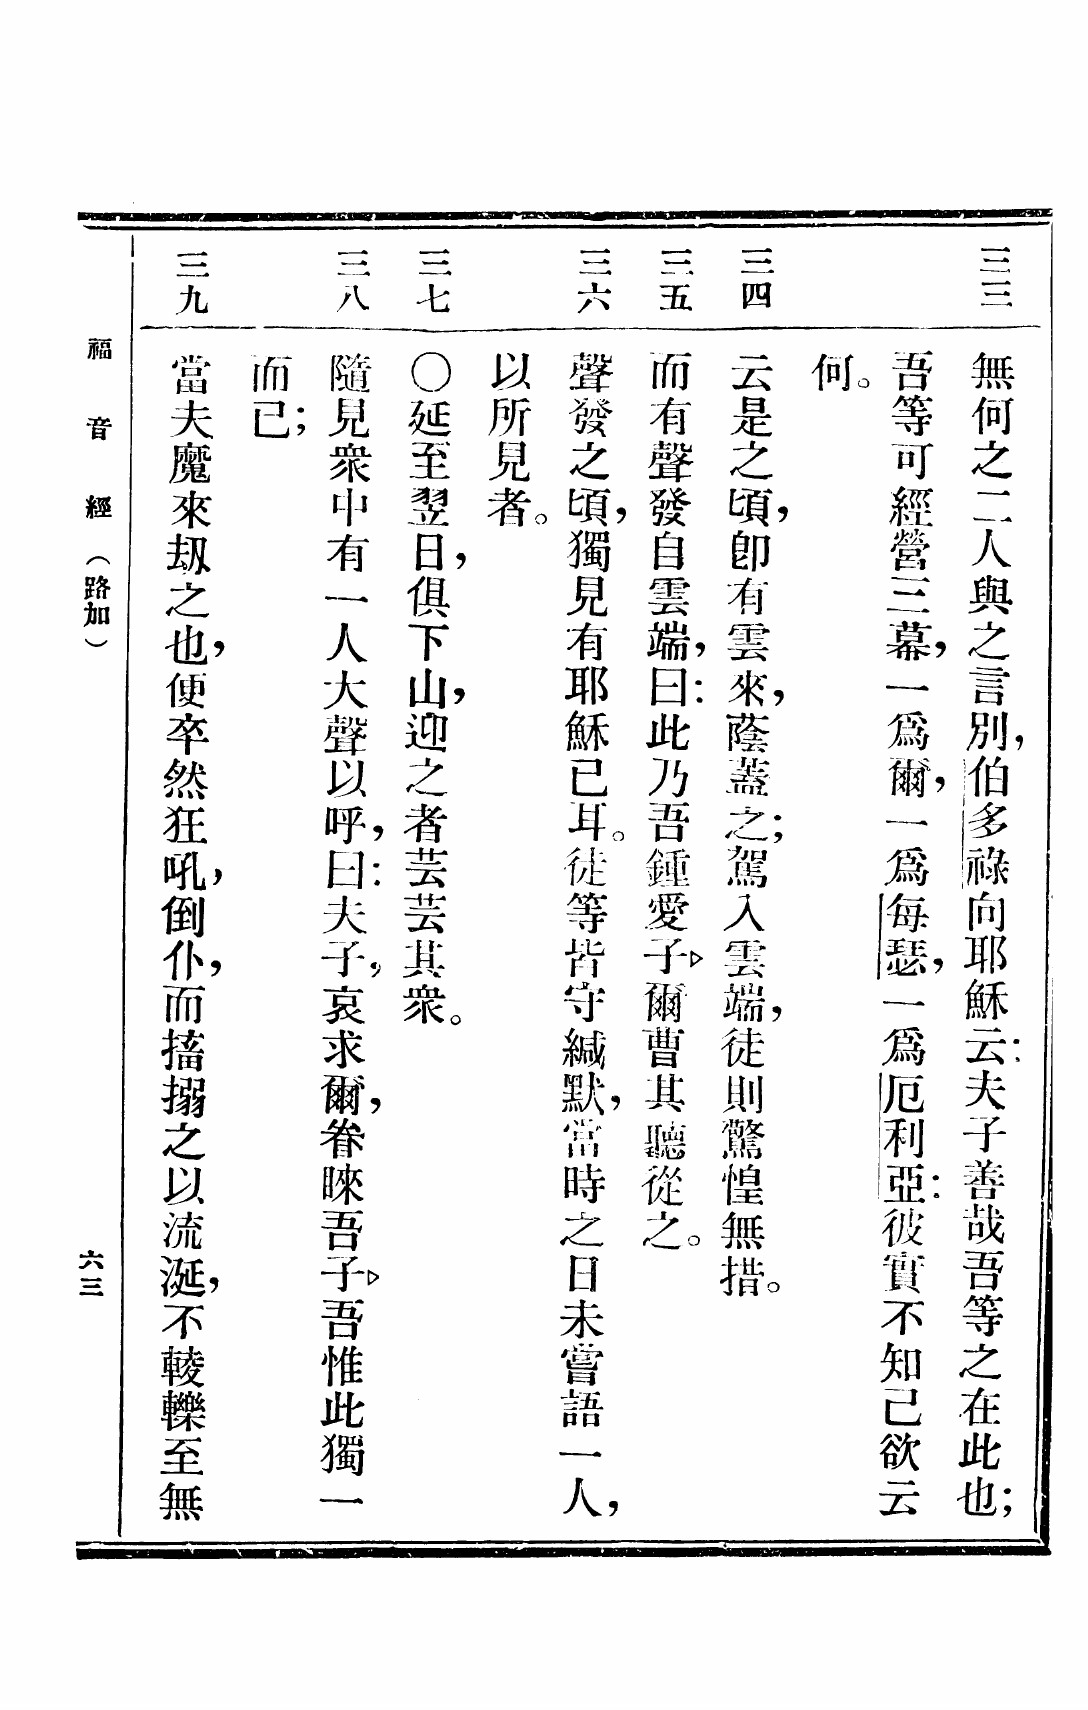 三三
無何之二人與之言別，伯多祿向耶穌云：夫子善哉吾等之在此也；
吾等可經營三幕，一爲爾，一爲每瑟，一爲厄利亞：彼實不知己欲云
何。
三四
云是之頃，卽有雲來，蔭蓋之；駕入雲端，徒則驚惶無措。
三五
而有聲發自雲端，曰：此乃吾鍾愛子▷爾曹其聽從之。
三六
聲發之頃，獨見有耶穌已耳。徒等皆守緘默，當時之日未嘗語一人，
以所見者。
三七
〇延至翌日，俱下山，迎之者芸芸其衆。
三八
隨見衆中有一人大聲以呼，曰：夫子，哀求爾，眷睞吾子▷吾惟此獨一
而已；
三九
當夫魔來刼之也，便卒然狂吼，倒仆，而搐搦之以流涎，不輘轢至無
福音經（路加）
六三